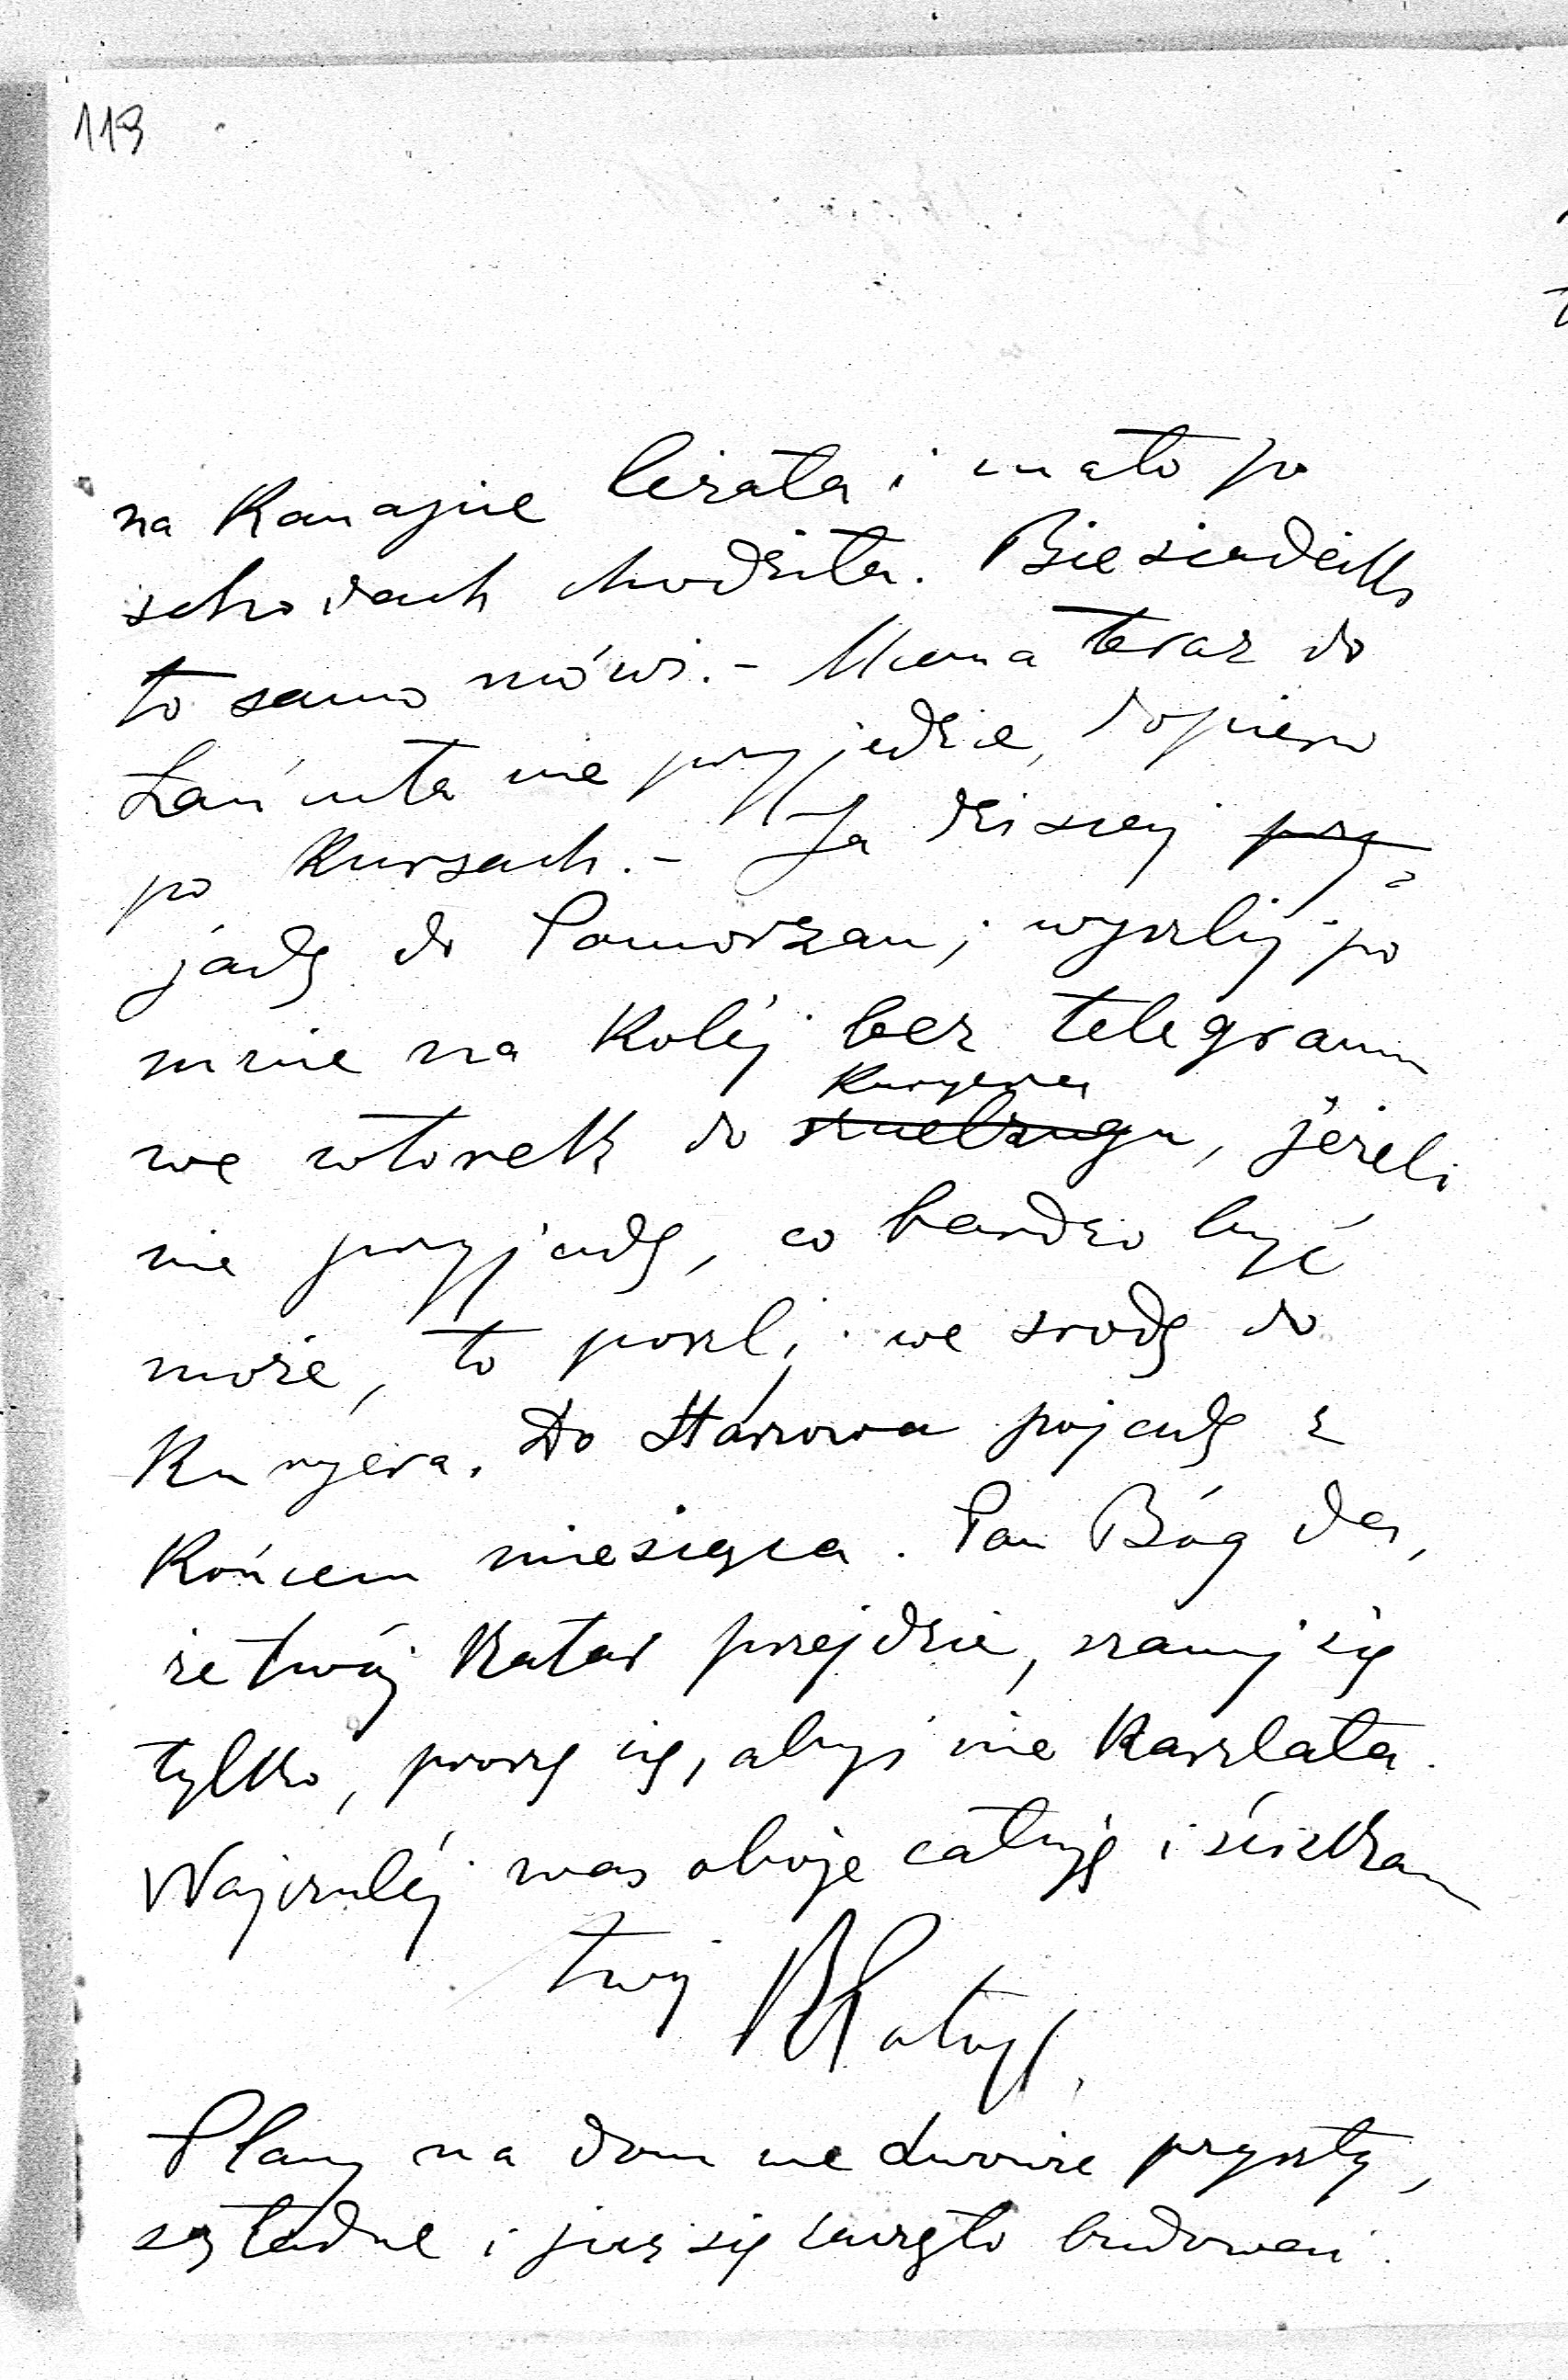 119
na Kanapie leżała i mało po
schodach chodziła. Biesiadecki
to samo mówi. - Mama teraz do
Łańcuta nie przyjedzie, dopiero
po Kursach. - Ja dzisiaj
jadę do Pomorzan, wyszlij po
mnie na Kolej bez telegramu
Kuryera
we wtorek do sznelzugu, jeżeli
nie przyjadę, co bardzo być
może, to poszlij we srodę do
Kuryera. Do pojadę z
Końcem miesiąca. Pan Bóg da,
że twój Katar przejdzie, szanuj się
tylko, proszę cię, abyś nie Kaszlała.
Najczulej was oboje całuję i ściskam
twój RPotocki
Plany na dom we Lwowie przyszły,
są ładne i już się zaczęło budować.